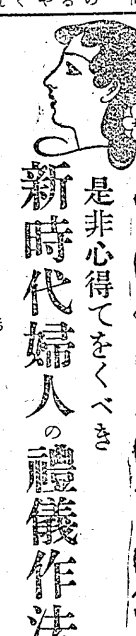 是非心得てをくべき
新時代婦人の禮儀作法